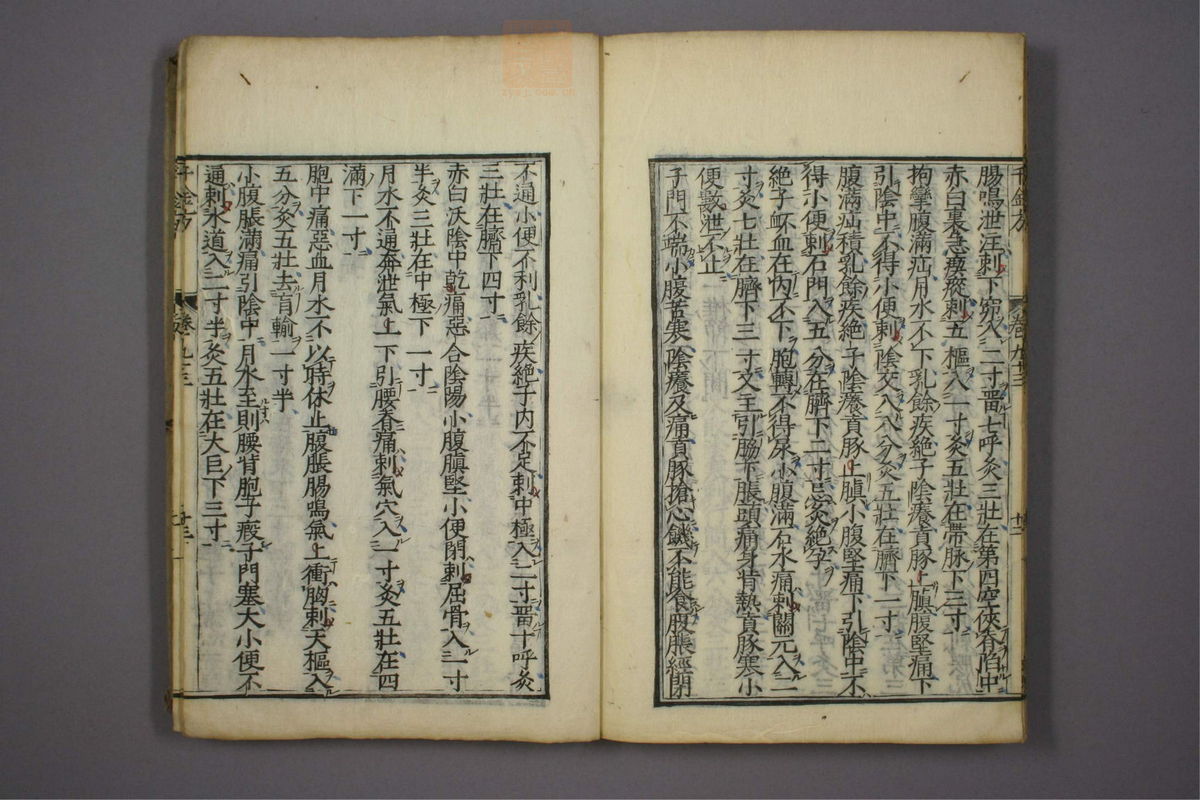 腸鳴泄注刺下窌入二寸留七呼灸三壯在第四空俠脊陷中
赤白裏急瘈瘲刺五樞入一寸灸五壯在帶脉下三寸
拘攣腹滿疝月水不下乳餘疾絕子陰癢賁豚上䐜腹堅痛下
引陰中不得小便刺陰交入八分灸五壯在臍下一寸
腹滿疝積乳餘疾絕子陰癢賁豚上䐜小腹堅痛下引陰中不
得小便刺石門入五分在臍下二寸忌灸絕孕
絕子衃血在內不下胞轉不得尿小腹滿石水痛刺關元入二
寸灸七壯在臍下三寸又主引脇下脹頭痛身背熱賁豚寒小
便數泄不止
子門不端小腹苦寒陰癢及痛賁豚搶心饑不能食腹脹經閉
不通小便不利乳餘疾絕子內不足刺中極入二寸留十呼灸
三壯在臍下四寸
赤白沃陰中乾痛惡合陰陽小腹䐜堅小便閉刺屈骨入一寸
半灸三壯在中極下一寸
月水不通奔泄氣上下引腰脊痛刺氣穴入一寸灸五壯在四
滿下一寸
胞中痛惡血月水不以時休止腹脹腸鳴氣上衝胸刺天樞入
五分灸五壯去肓輸一寸半
小腹脹滿痛引陰中月水至則腰背胞子瘕子門塞大小便不
通刺水道入二寸半灸五壯在大巨下三寸